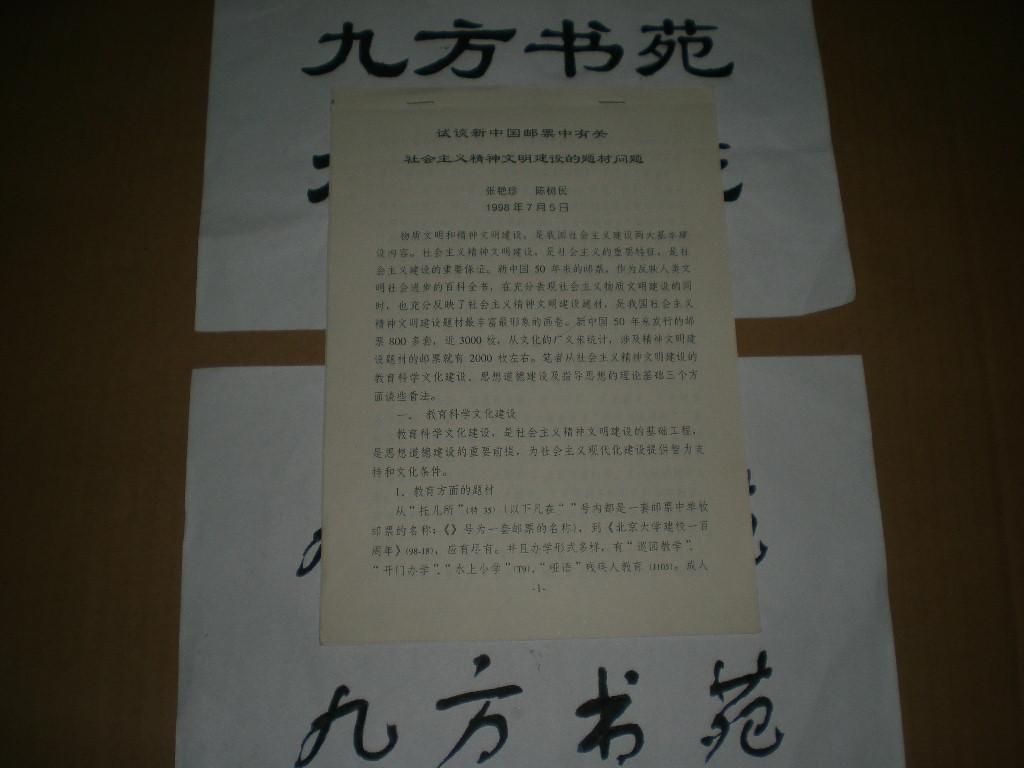 九方书苑
试谈新中国邮票中有关
社会主义精神文明建设的题材问题
张艳珍 陈树民
1998年7月5日
物质文明和精神文明建设，是我国社会主义建设两大基本建
设内容。社会主义精神文明建设，是社会主义的重要特征，是社
会主义建设的重要保证。新中国 50 年来的邮票，作为反映人类文
明社会进步的百科全书，在充分表现社会主义物质文明建设的同
时，也充分反映了社会主义精神文明建设题材，是我国社会主义
精神文明建设题材最丰富最形象的画卷。新中国 50 年来发行的邮
票 800 多套，近 3000 枚，从文化的广义来统计，涉及精神文明建
设题材的邮票就有 2000 枚左右。笔者从社会主义精神文明建设的
教育科学文化建设、思想道德建设及指导思想的理论基础三个方
面谈些看法。
一、 教育科学文化建设
教育科学文化建设，是社会主义精神文明建设的基础工程，
是思想道德建设的重要前提，为社会主义现代化建设提供智力支
持和文化条件。
1、教育方面的题材
从“托儿所”(特 35)（以下凡在“ ”号内都是一套邮票中单枚
邮票的名称；《》号为一套邮票的名称），到《北京大学建校一百
周年》(98-18)，应有尽有。并且办学形式多样，有“巡回教学”、
“开门办学”、“水上小学”(T9)、“哑语”残疾人教育 (J105)。成人
-1-
九方书苑